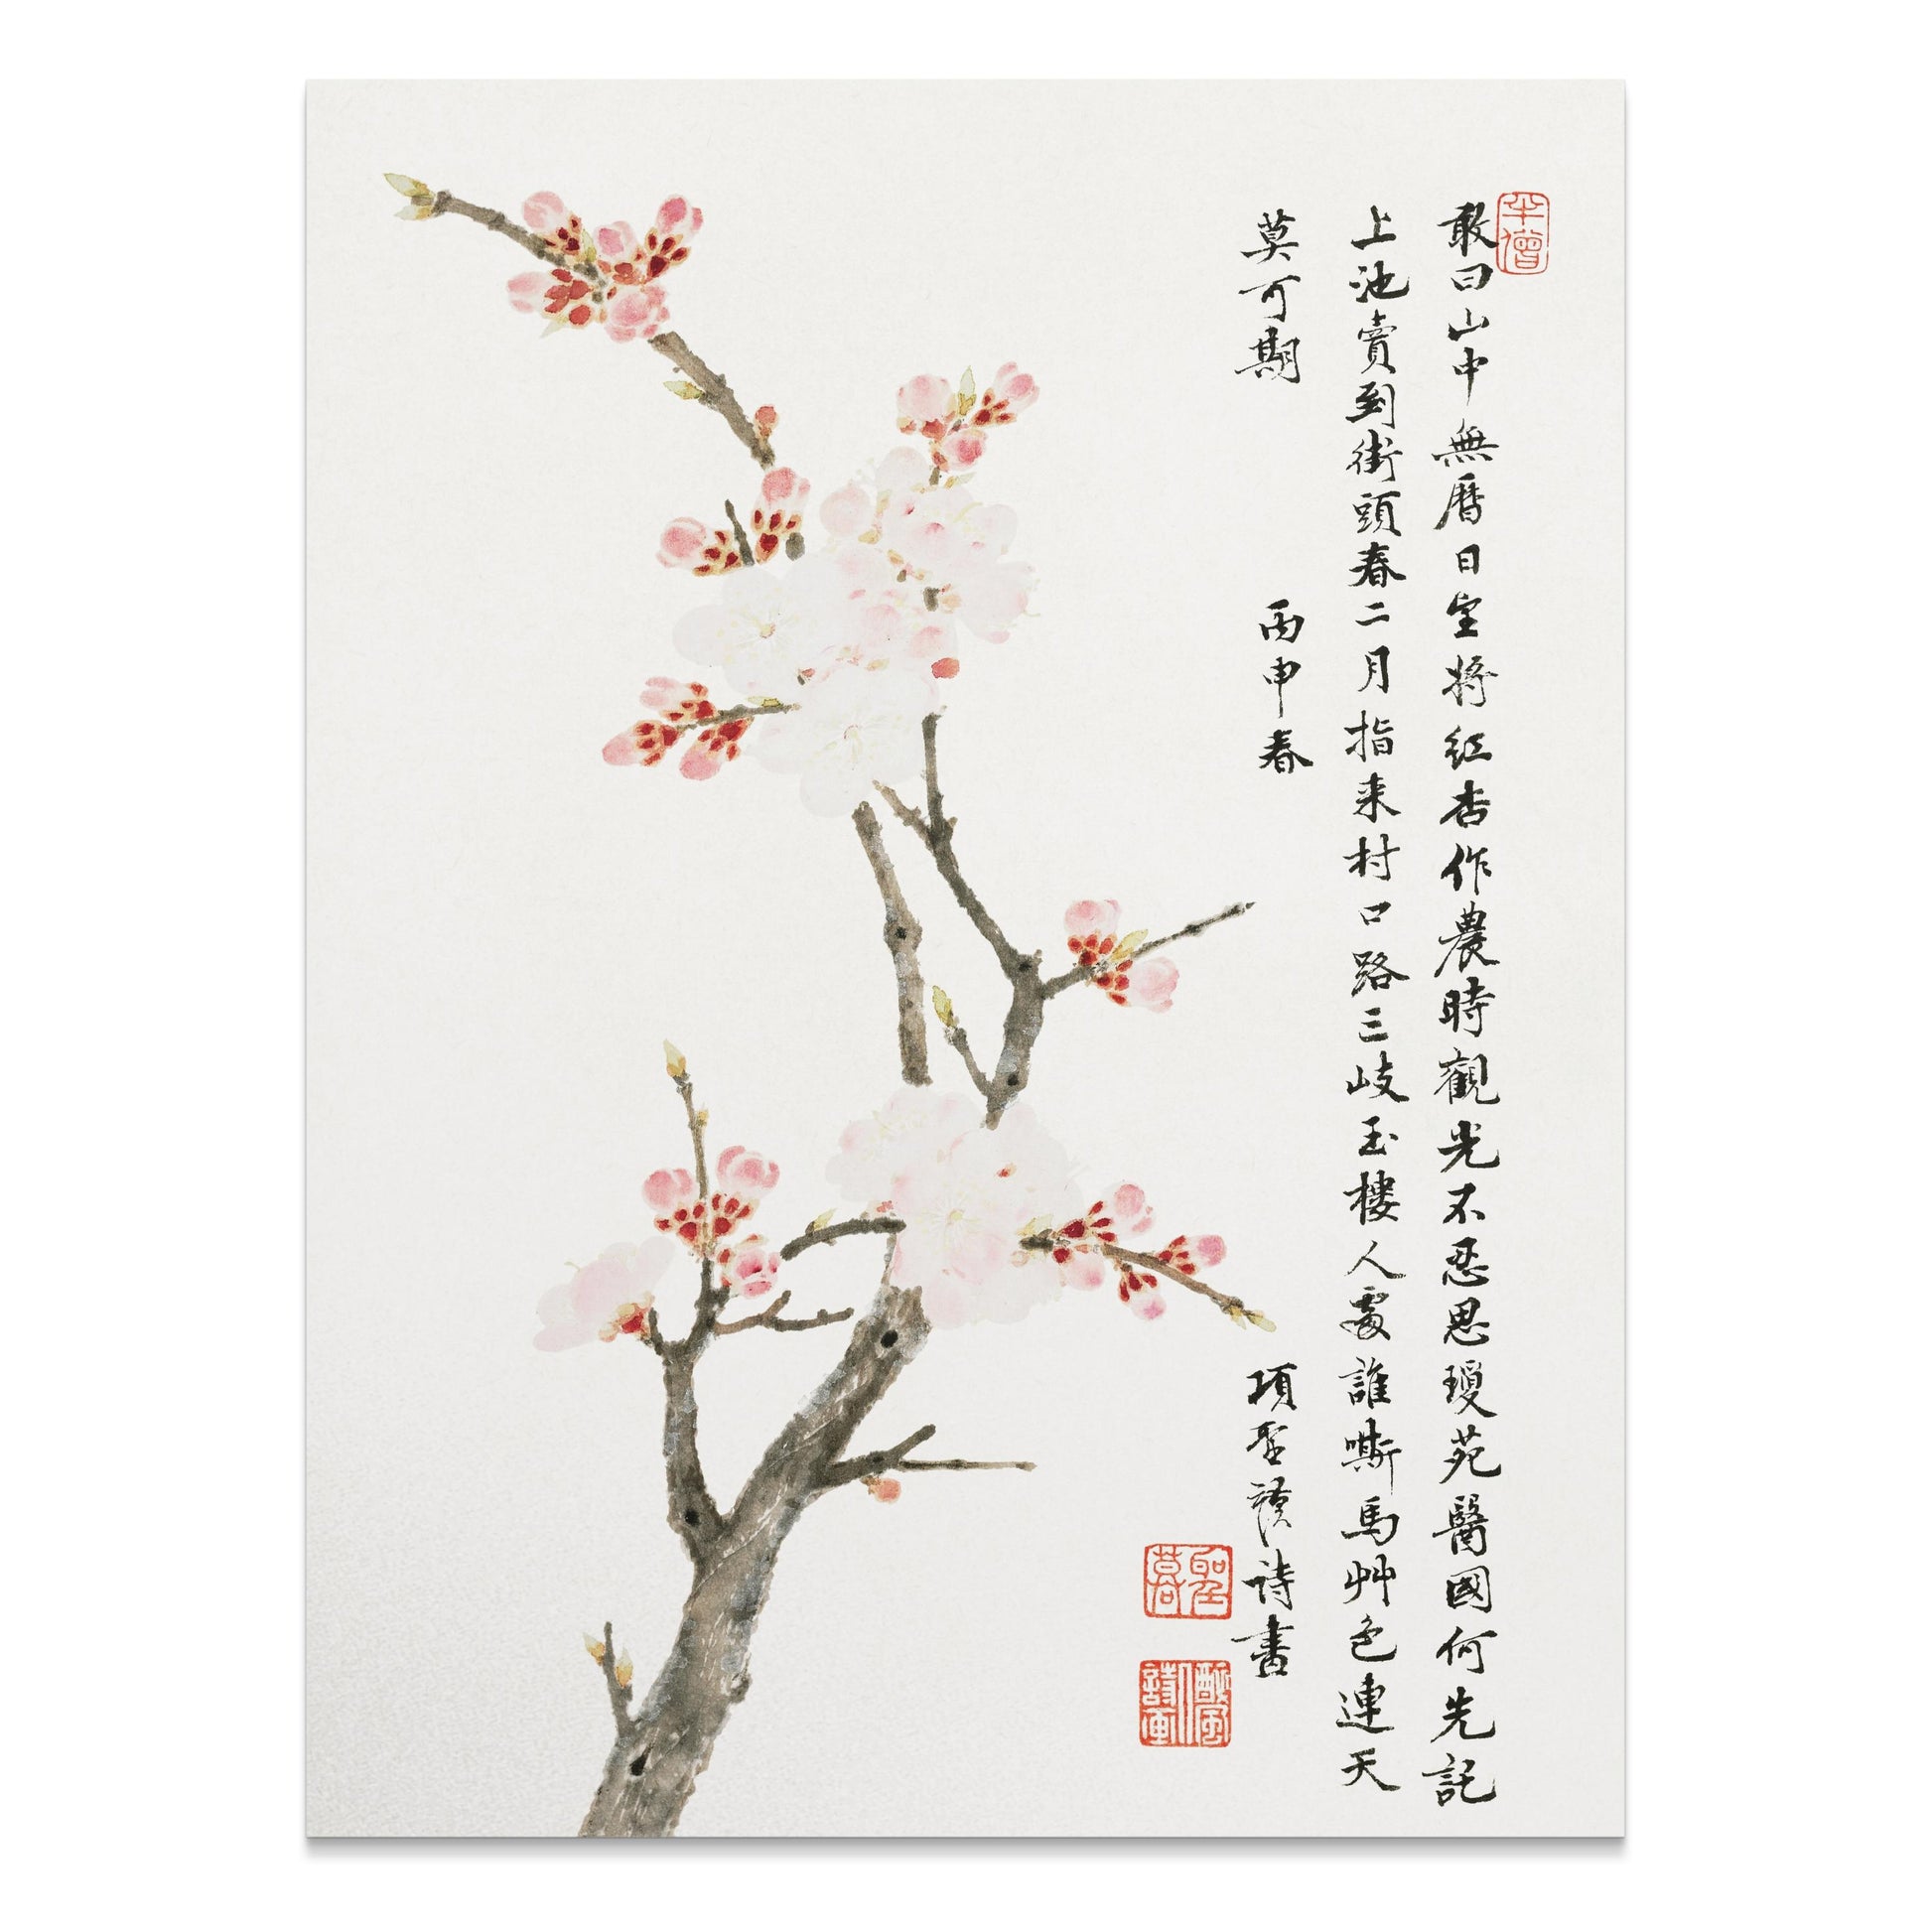 半僧
敢曰山中無曆日空將紅杏作農時觀光不忍思瓊苑醫國何先託
上池賣到街頭春二月指来村口路三岐玉樓人處誰嘶馬艸色連天
莫可期
丙申春
項聖謨詩畫
聖謨